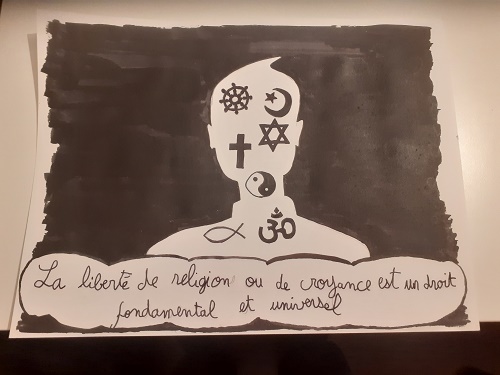 La liberté de religion ou de croyance est un droit
fondamental et universel